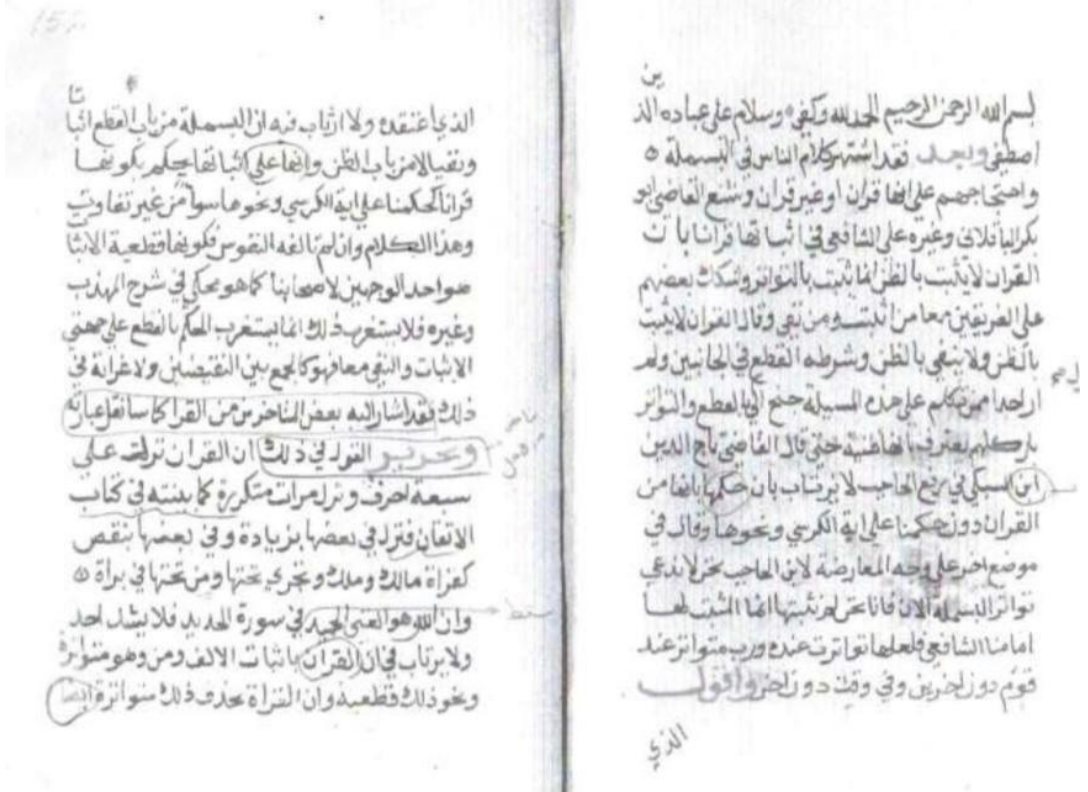 ين
بسم الله الرحمن الرحيم الحمد لله وكفى وسلام على عباده الذ
اصطفى وبعد فقد اشتهر كلام الناس في البسملة
واحتجاجهم على انها قران او غير قران وشنع القاضي ابو
بكر الباقلاني وغيره على الشافعي في اثباتها قرانا بان
القران لا يثبت بالظن انما يثبت بالتواتر وشكك بعضهم
على الفريقين معا من اثبت ومن نفى وقال القران لا يثبت
بالظن ولا ينفى بالظن وشرطه القطع في الجانبين ولم
ار احدا ممن تكلم على هذه المسيلة جنح الى القطع والتواتر
بل كلهم يعترف بانها ظنية حتى قال القاضي تاج الدين
ابن السبكي في رفع الحاجب لا يرتاب بان حكمها بانها من
القران دون حكمنا على اية الكرسي ونحوها وقال في
موضع اخر على وجه المعارضة لابن الحاجب نحن لا ندعي
تواتر البسملة الان فانا نحن لم نثبتها انما المثبت لها
امامنا الشافعي فلعلها تواترت عنده ورب متواتر عند
قوم دون اخرين وفي وقت دون اخر واقول
الذي
152
تا
الذي اعتقده ولا ارتاب فيه ان البسملة من باب القطع اثبا
ونفيا لا من باب الظن وانها على اثباتها يحكم بكونها
قرانا كحكمنا على اية الكرسي ونحوها سواء من غير تفاوت
وهذا الكلام وان لم تالفه النفوس فكونها قطعية الاثبا
هو احد الوجهين لاصحابنا كما هو محكي في شرح المهذب
وغيره فلا يستغرب ذلك انما يستغرب الحكم بالقطع على جهتى
الاثبات والنفي معا فهو كالجمع بين النقيضين ولا غرابة في
ذلك فقد اشار اليه بعض المتاخرين من القرا كما سانقل عبارته
وتحرير القول في ذلك ان القران نزل على
سبعة احرف ونزل مرات متكررة كما بينته في كتاب
الاتقان فنزل في بعضها بزيادة وفي بعضها بنقص
كقراة مالك وملك وتجري تحتها ومن تحتها في براة
وان الله هو الغنى الحميد في سورة الحديد فلا يشك احد
ولا يرتاب في ان القران باثبات الالف ومن وهو متواترة
ونحو ذلك قطعية وان القراة بحذف ذلك متواترة ايضا
سقط